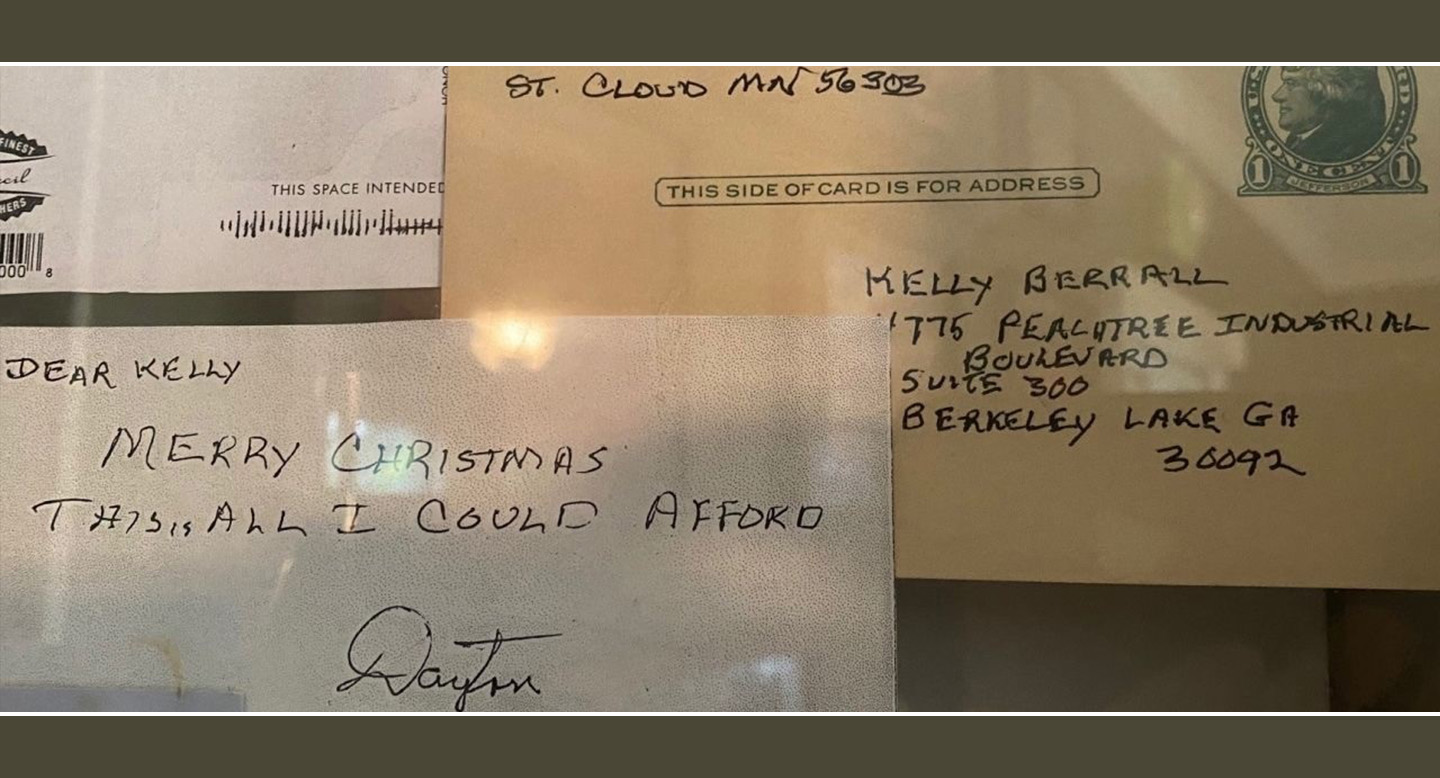 FINEST
HERS
000 8
THIS SPACE INTENDED
ST. CLOUD MN 56303
U.S.
RD
1 ONE CENT 1
JEFFERSON
THIS SIDE OF CARD IS FOR ADDRESS
KELLY BERRALL
4775 PEACHTREE INDUSTRIAL
BOULEVARD
SUITE 300
BERKELEY LAKE GA
30092
DEAR KELLY
MERRY CHRISTMAS
THIS IS ALL I COULD AFFORD
Dayton